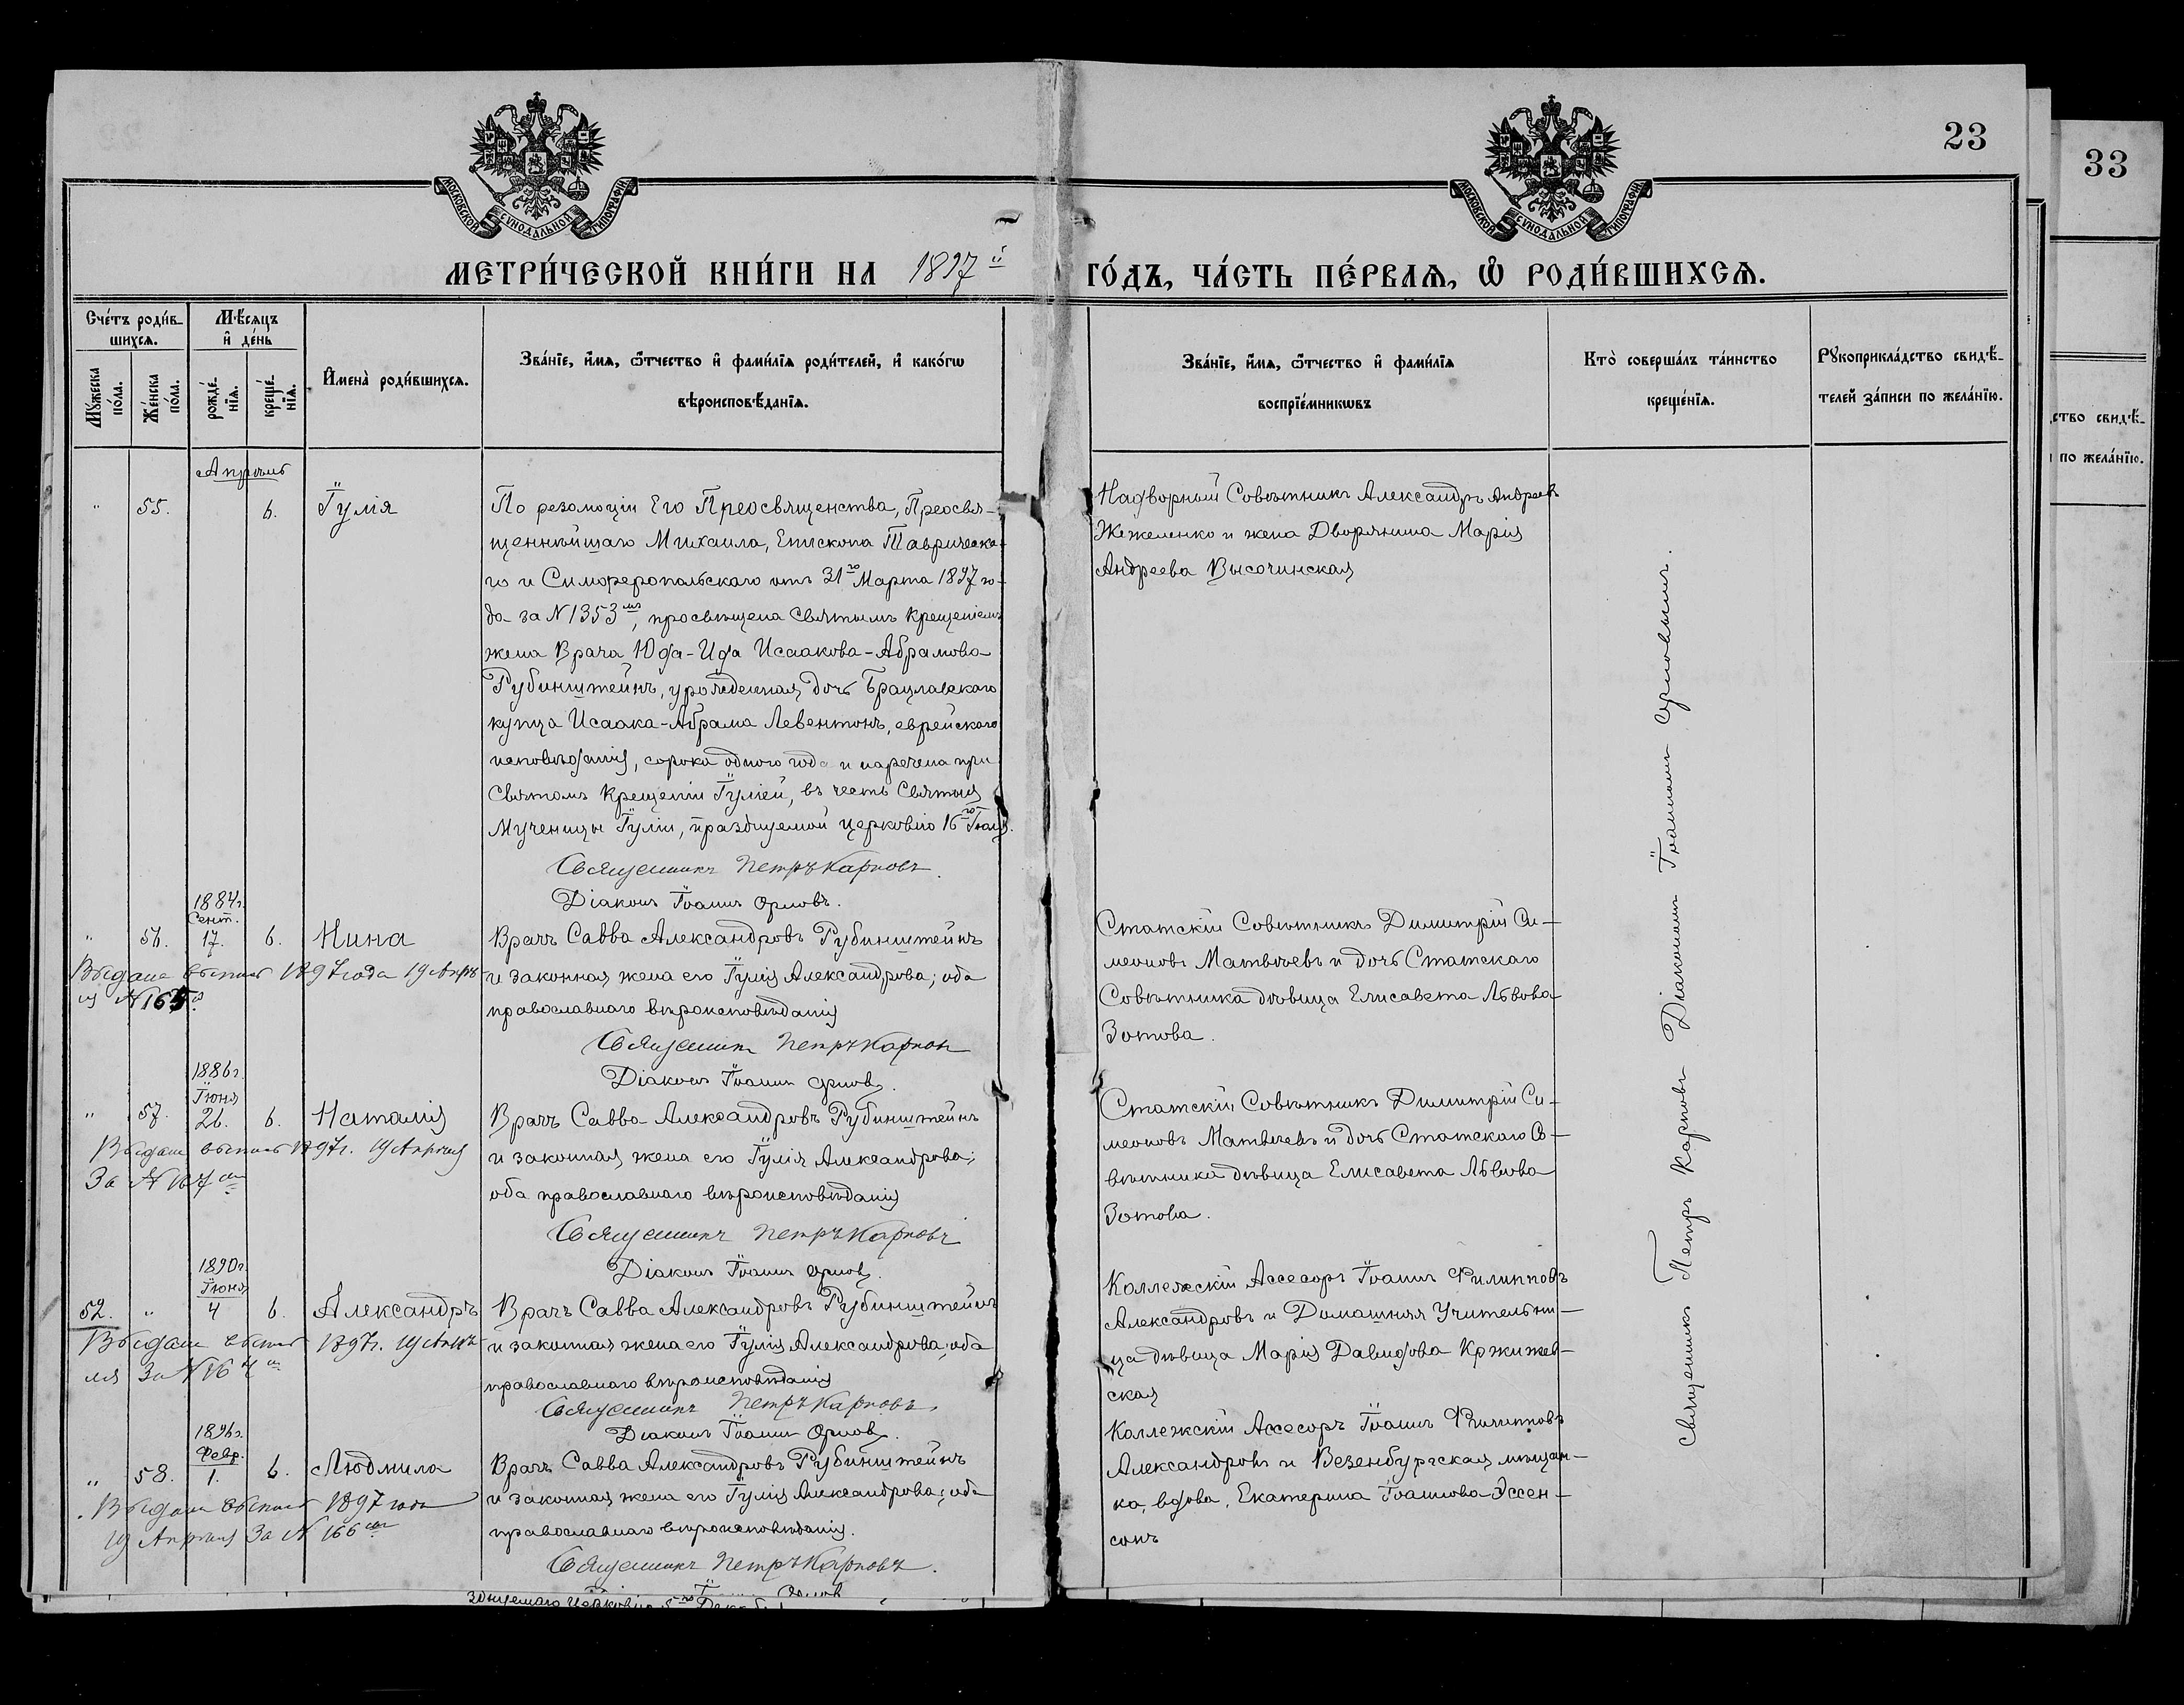 23
33
МОСКОВСКОЙ СѴНОДАЛЬНОЙ ТИПОГРАФІИ
МОСКОВСКОЙ СѴНОДАЛЬНОЙ ТИПОГРАФІИ
МЕТРИ́ЧЕСКОЙ КНИ́ГИ НА 1897й ГО́ДЪ, ЧА́СТЬ ПЕ́РВАѦ, Ѡ РОДИ́ВШИХСѦ.
Сче́тъ роди́в-
шихсѧ.
Мꙋ́жеска
по́ла.
Же́нска
по́ла.
Мѣ́сѧцъ
и҆ де́нь
рожде́-
нїѧ.
креще́-
нїѧ.
И҆мена̀ роди́вшихсѧ.
Зва́нїе, и҆́мѧ, ѻ҆́тчество и҆ фами́лїѧ роди́телей, и҆ како́гѡ
вѣроисповѣ́данїѧ.
Зва́нїе, и҆́мѧ, ѻ҆́тчество и҆ фами́лїѧ
воспрїе́мникѡвъ
Кто̀ соверша́лъ та́инство
креще́нїѧ.
Рꙋкоприкла́дство свидѣ́-
телей за́писи по жела́нїю.
ство свидѣ́-
по жела́нїю.
Апрѣль
" 55. 6. Іулія
По резолюціи Его Преосвященства, Преосвя-
щеннѣйшаго Михаила, Епископа Таврическа-
го и Симферопольскаго отъ 31го Марта 1897 го-
да за N 1353мъ, просвѣщена Святымъ Крещеніемъ
жена Врача Юда-Ида Исаакова-Абрамова
Рубинштейнъ, урожденная дочь Брацлавскаго
купца Исаака-Абрама Левентонъ, еврейскаго
исповѣданія, сорока одного года и наречена при
Святомъ Крещеніи Іуліей, въ честь Святыя
Мученицы Іуліи, празднуемой церковію 16го Іюля.
Священникъ Петръ Карповъ.
Діаконъ Іоаннъ Орловъ.
Надворный Совѣтникъ Александръ Андреевъ
Жежеленко и жена Дворянина Марія
Андреева Высочинская
1884г.
Сент.
" 56. 17. 6. Нина
Выдана выпись 1897 года 19 Апрѣ
ля N 165
Врачъ Савва Александровъ Рубинштейнъ
и законная жена его Іулія Александрова; оба
православнаго вѣроисповѣданія
Священникъ Петръ Карповъ
Діаконъ Іоаннъ Орловъ.
Статскій Совѣтникъ Димитрій Си-
меоновъ Матвѣевъ и дочь Статскаго
Совѣтника дѣвица Елисавета Львова
Зотова.
1886г.
Іюня
" 57. 26. 6. Наталія
Выдана выпись 1897г. 19 Апрѣля
За N 167
Врачъ Савва Александровъ Рубинштейнъ
и законная жена его Іулія Александрова;
оба православнаго вѣроисповѣданія
Священникъ Петръ Карповъ
Діаконъ Іоаннъ Орловъ.
Статскій Совѣтникъ Димитрій Си-
меоновъ Матвѣевъ и дочь Статскаго Со-
вѣтника дѣвица Елисавета Львова
Зотова.
1890г.
Іюня
52. " 4 6. Александръ
Выдана выпись 1897г. 19 Апрѣ-
ля За N 164
Врачъ Савва Александровъ Рубинштейнъ
и законная жена его Іулія Александрова; оба
православнаго вѣроисповѣданія
Священникъ Петръ Карповъ.
Діаконъ Іоаннъ Орловъ.
Коллежскій Ассесоръ Іоаннъ Филипповъ
Александровъ и Домашняя Учительни-
ца дѣвица Марія Давидова Кржижев-
ская
1896г.
Февр.
" 58. 1. 6. Людмила
Выдана выпись 1897 года
19 Апрѣля За N 166
Врачъ Савва Александровъ Рубинштейнъ
и законная жена его Іулія Александрова; оба
православнаго вѣроисповѣданія.
Священникъ Петръ Карповъ.
Коллежскій Ассесоръ Іоаннъ Филипповъ
Александровъ и Везенбургская мѣщан-
ка, вдова, Екатерина Іоаннова Эссен-
сонъ
Священникъ Петръ Карповъ Діакономъ Іоанномъ Орловымъ.